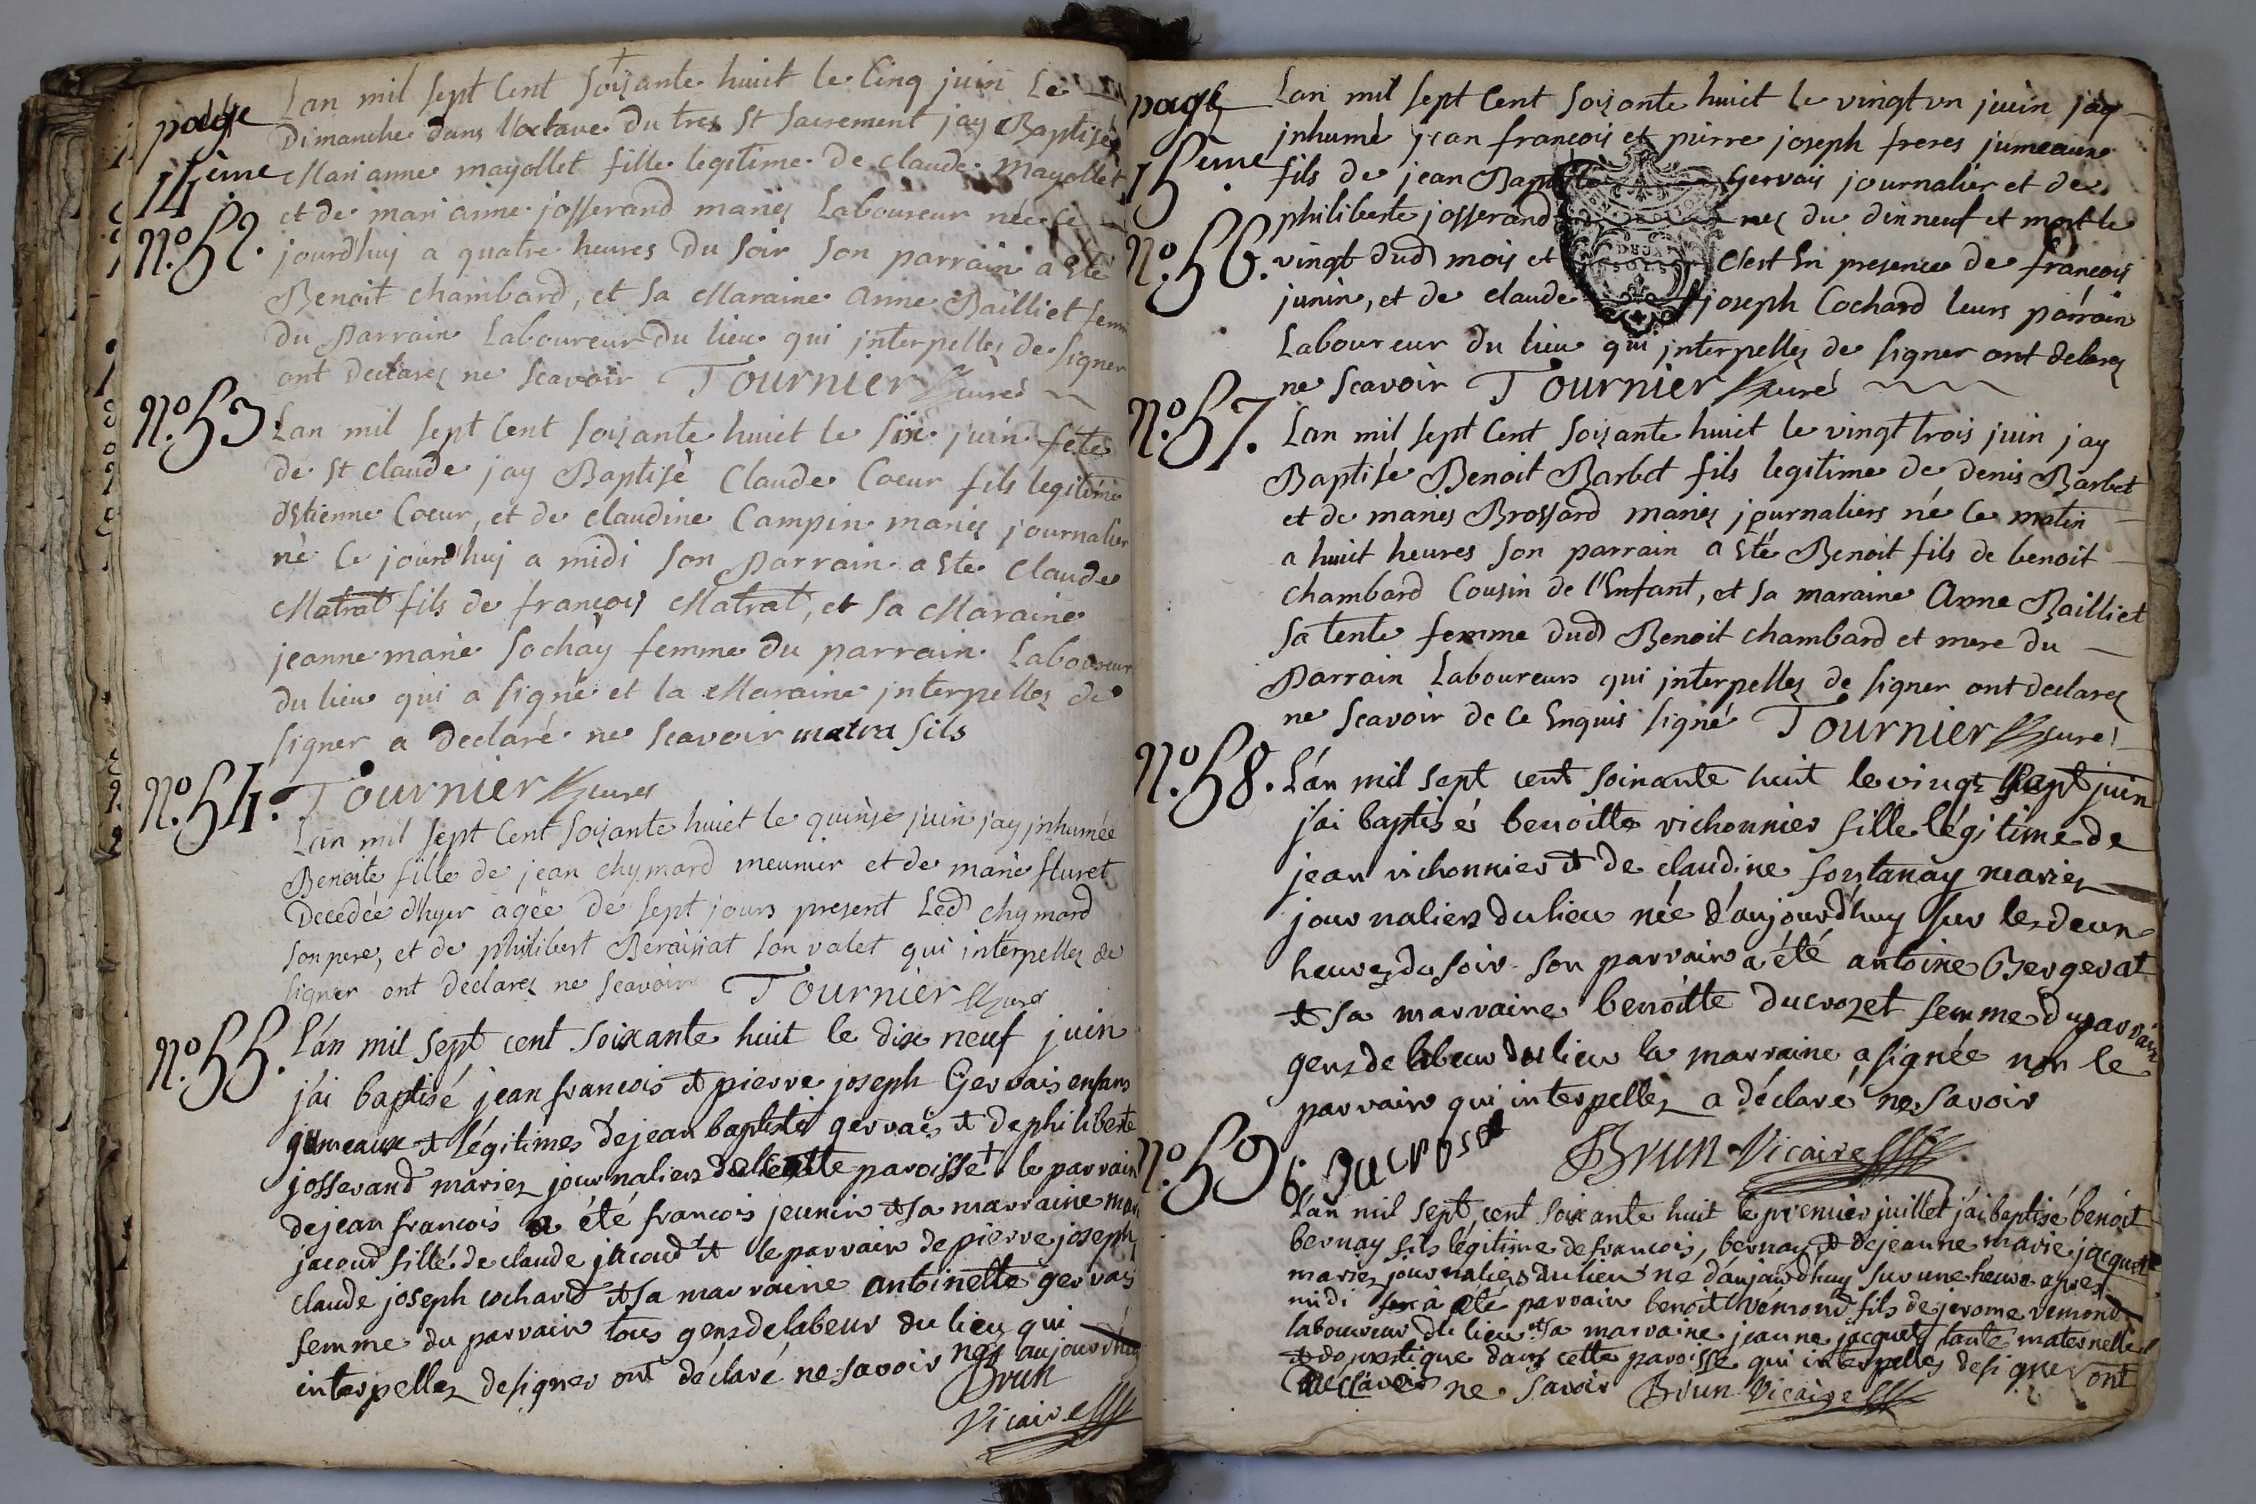 page
14 eme
n.º 52.
Lan mil sept Cent soizante huict le Cinq juin Le
Dimanche dans l'octave du tres St Sacrement jay Baptisé
Marianne mayollet fille legitime de claude mayollet
et de marianne josserand mariés Laboureur née ce
jourdhuy a quatre heures du soir son parrain a Eté
Benoit chambard, et sa Maraine Anne Bailliet fem
du Parrain Laboureur du lieu qui interpellez de signer
ont declarez ne scavoir Tournier Curé
n.º 53.
Lan mil sept Cent soizante huict le six juin fete
de St claude jay Baptisé Claude Coeur fils legitime
dEtienne Coeur, et de claudine Campin mariez journalier
né Ce jourdhuj a midi son Parrain a Ete Claude
Matrat fils de françois Matrat, et sa Maraine
jeanne marie sochay femme du parrain Laboureur
du lieu qui a signé et la Maraine interpellez de
signer a Declaré ne scavoir matra fils
Tournier Curé
n.º 54.
Lan mil sept Cent soizante huict le quinze juin jay inhumée
Benoite fille de jean chymard meunier et de marie sturet
Decedée d'hyer agée de sept jours present Led chymard
son pere, et de philibert Beraisiat son valet qui interpellez de
signer ont declarez ne scavoir Tournier Curé
n.º 55.
L'án mil sept cent soixante huit le dix neuf juin
j'ai baptisé jean francois et pierre joseph Gervais enfans
jumeaux et légitimes de jean baptiste gervais et de philiberte
josserand mariez journaliers de cette paroisse le parrain
de jean francois a été francois jeunin et sa marraine mari
jacoud fille de claude jacoud et le parrain de pierre joseph
claude joseph cochard et sa marraine antoinette gervais
femme du parrain tous gens de labeur du lieu qui
interpellez de signer ont déclaré ne savoir nés aujourdhuy
Brun
Vicaire
page
15 eme
n.º 56.
Lan mil sept Cent soizante huict le vingt vn juin jay
jnhumé jean françois et pierre joseph freres jumeaux
fils de jean Baptiste Gervais journalier et de
philiberte josserand nez du dixneuf et mort le
vingt dud mois et C'est En presence de françois
junin, et de claude joseph Cochard leurs parrain
Laboureur du lieu qui interpellez de signer ont declarez
ne scavoir Tournier Curé
n.º 57.
Lan mil sept Cent soizante huict le vingt trois juin jay
Baptisé Benoit Barbet fils legitime de denis Barbet
et de maries Brossard mariez journaliers né Ce matin
a huict heures son parrain a Eté Benoit fils de benoit
chambard Cousin de l'Enfant, et sa maraine Anne Bailliet
sa tente femme dud Benoit chambard et mere du
Parrain Laboureurs qui interpellez de signer ont declarez
ne scavoir de Ce Enquis signé Tournier Curé
n.º 58.
L'án mil sept cent soixante huit le vingt sept juin
j'ai baptisés benoitte vichonnier fille légitime de
jean vichonnier et de claudine fontanay mariez
journaliers du lieu née d'aujourd'huy sur les deux
heures du soir son parrain a été antoine Bergerat
et sa marraine benoitte ducrozet femme du parrain
gens de labeur du lieu la marraine a signée non le
parrain qui interpellez a déclaré ne savoir
b. Ducroset Brun Vicaire
n.º 59
L'án mil sept cent soixante huit le premier juillet j'ai baptisé benoit
bernay fils légitime de francois, bernay et de jeanne marie jacquet
mariez journaliers du lieu né d'aujourdhuy sur une heure aprez
midi a été parrain benoit vémond fils de jerome vemond
laboureur du lieu et sa marraine jeanne jacquet tante maternelle
et domestique dans cette paroisse qui interpellez de signer ont
déclarés ne savoir Brun Vicaire